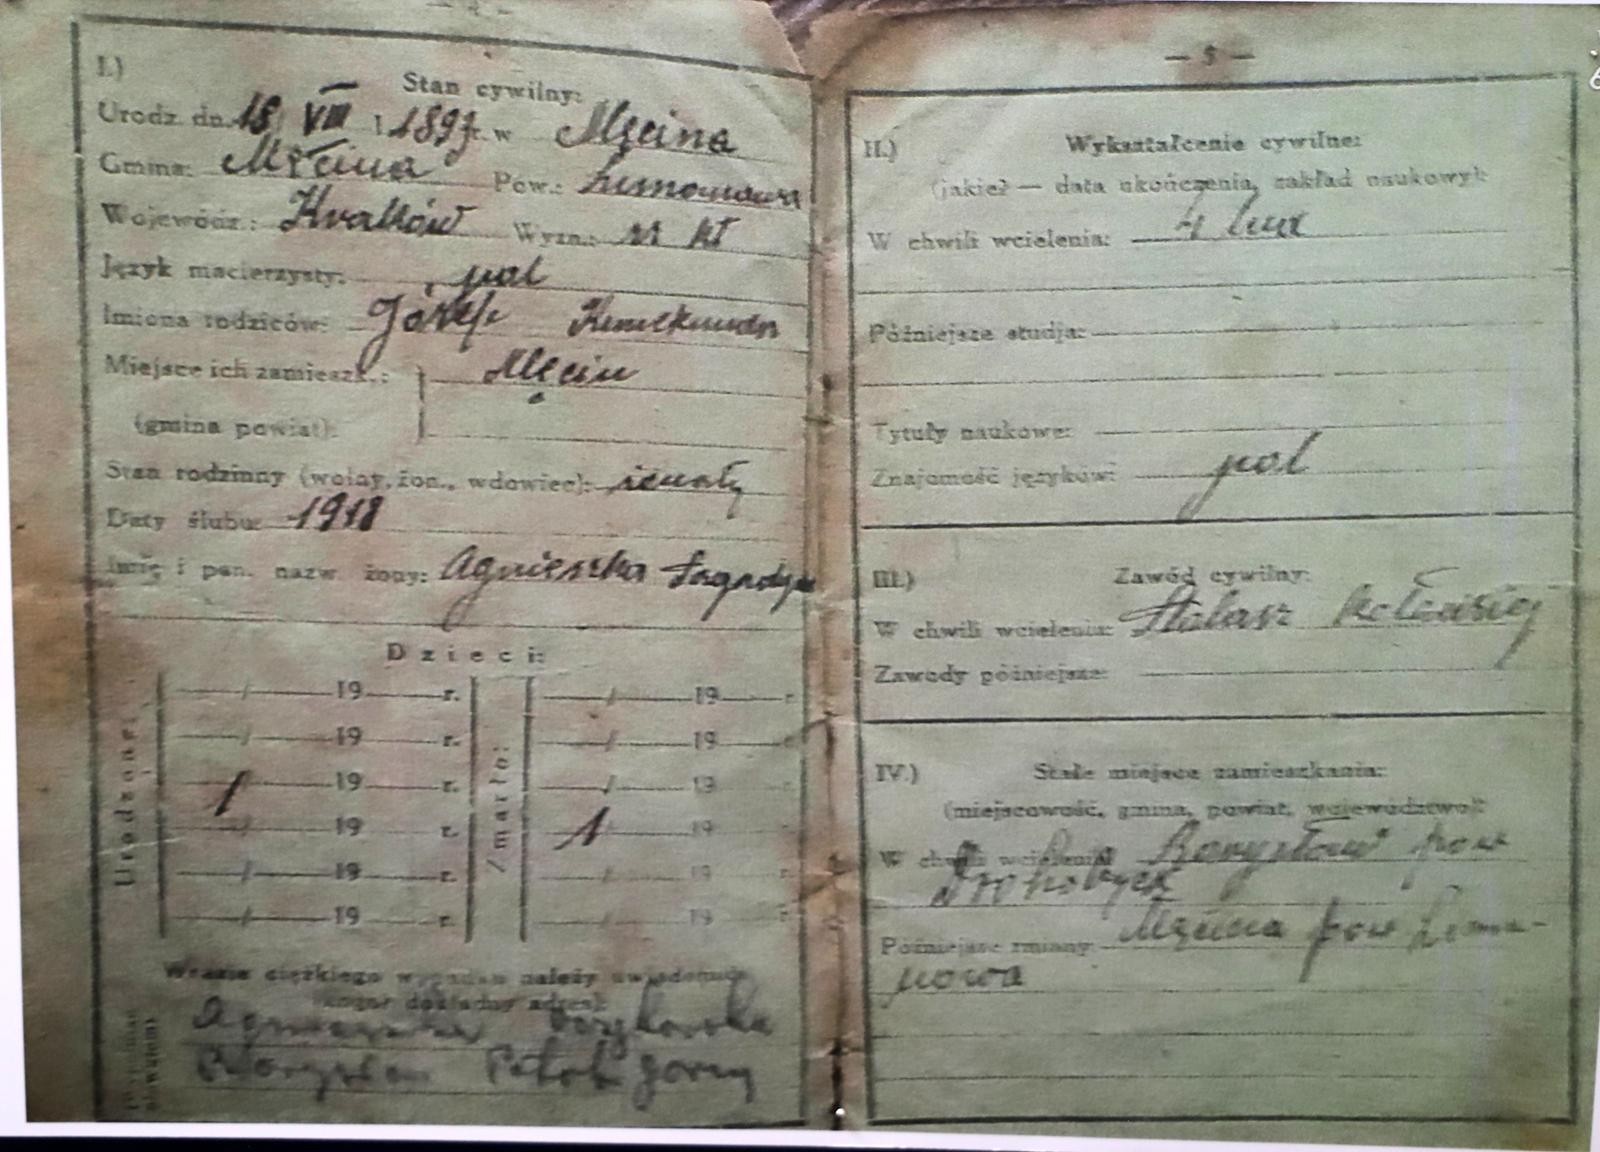 I.)
Stan cywilny:
Urodz. dn. 18 VIII 1 1897 r. w Męcina
Gmina: Męcina Pow.: Limanowa
Wojewódz.: Kraków Wyzn.: kt
Język macierzysty: pol
Imiona rodziców: Józef
Miejsce ich zamieszk.: Męcin
(gmina powiat):
Stan rodzinny (wolny, żon., wdowiec): żonaty
Daty ślubu: 1918
Imię i pan. nazw. żony: Agnieszka
Dzieci:
Urodzone:
Zmarło:
19 r. 19 r.
19 r. 19
19 r. 19
1 19 r. 1 19
19 r. 19 r.
19 r. 19 r.
W razie ciężkiego wypadku należy uwiadomić
kogo: dokładny adres):
Agnieszka
Borysław Potok górny
— 5 —
II.) Wykształcenie cywilne:
(jakie? — data ukończenia, zakład naukowy):
W chwili wcielenia: 4
Późniejsze studja:
Tytuły naukowe:
Znajomość języków: pol
III.) Zawód cywilny:
W chwili wcielenia:
Zawody późniejsze:
IV.) Stałe miejsce zamieszkania:
(miejscowość, gmina, powiat, województwo):
W chwili wcielenia: Borysław pow
Drohobycz
Późniejsze zmiany: Męcina pow Lima-
nowa